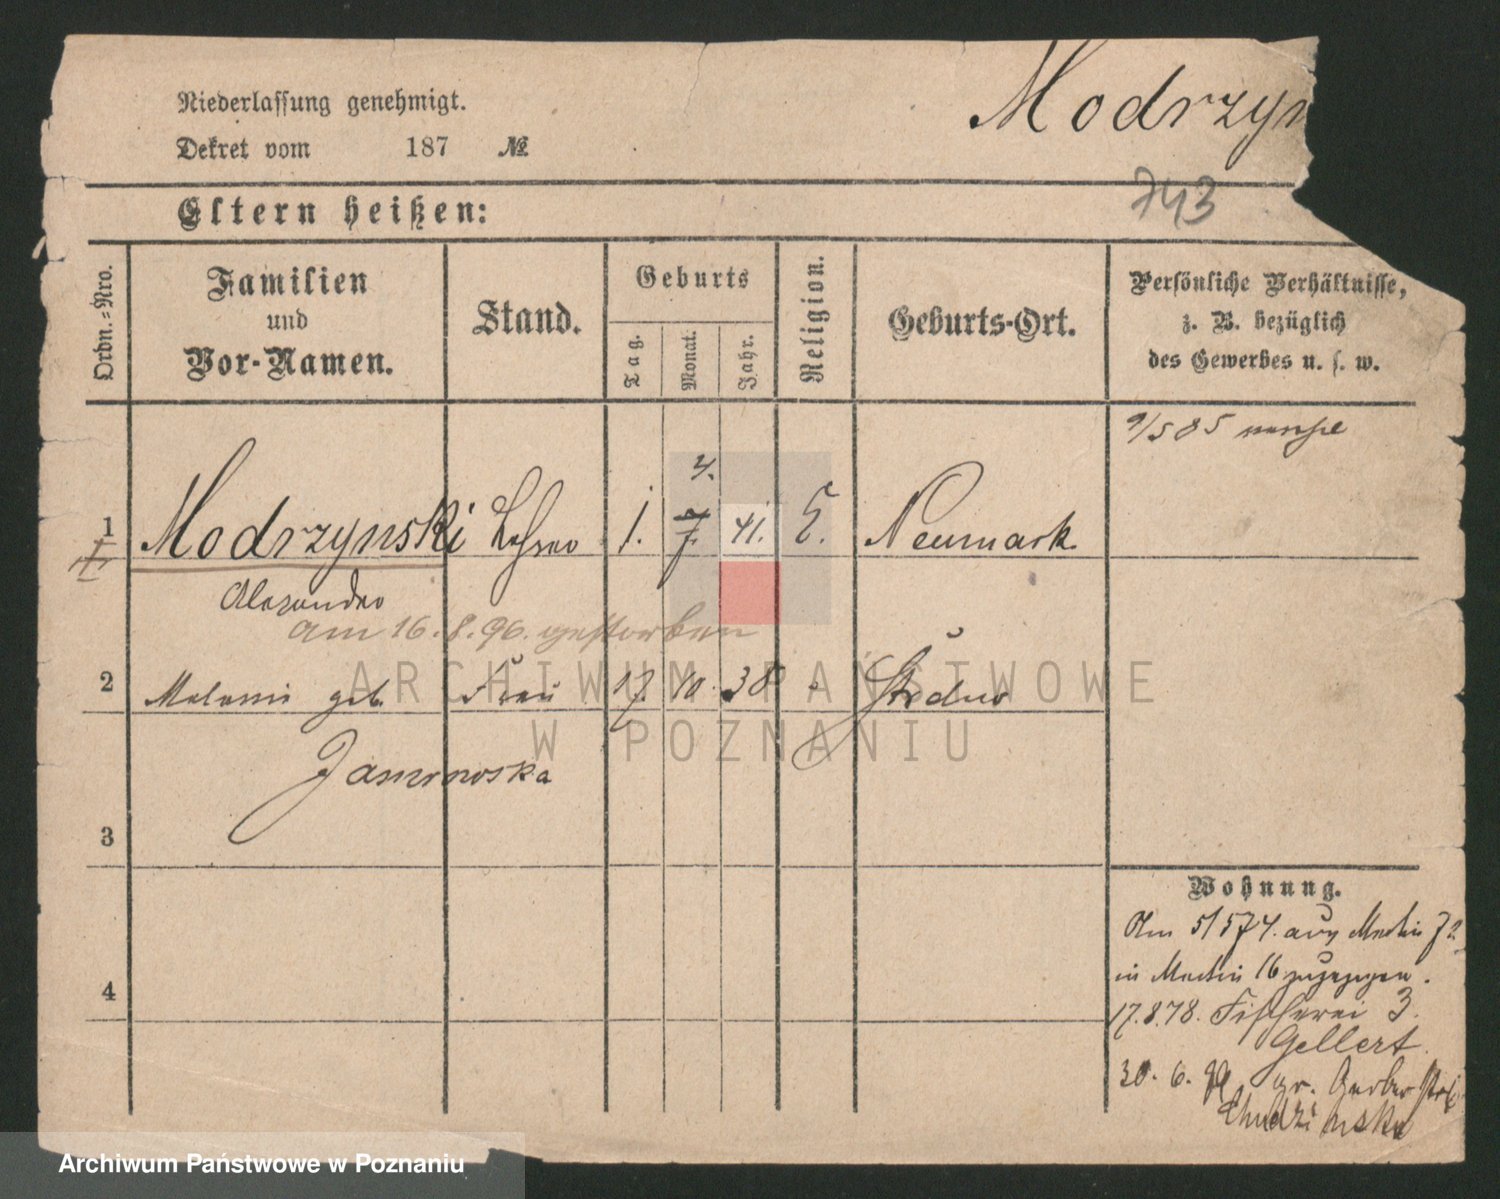 Niederlassung genehmigt.
Modrzyn
Dekret vom 187 №
743
Eltern heißen:
Ordn.-Nro.
Familien
und
Vor-Namen.
Stand.
Geburts
Tag.
Monat.
Jahr.
Religion.
Geburts-Ort.
Persönliche Verhältnisse,
z. B. bezüglich
des Gewerbes u. s. w.
9/5 85
4.
1 Modrzynski Lehrer 1. 7. 41. E. Neumark.
Alexander
am 16.8.96. gestorben
2 Melanie geb. Frau 17. 10. 38
ARCHIWUM PAŃSTWOWE
W POZNANIU
3
Wohnung.
Am 5/5 74. aus Martin 72
in Martin 16 zugezogen.
4
17.8.78. Fischerei 3.
Gellert.
30. 6. gr. Gerber
Archiwum Państwowe w Poznaniu